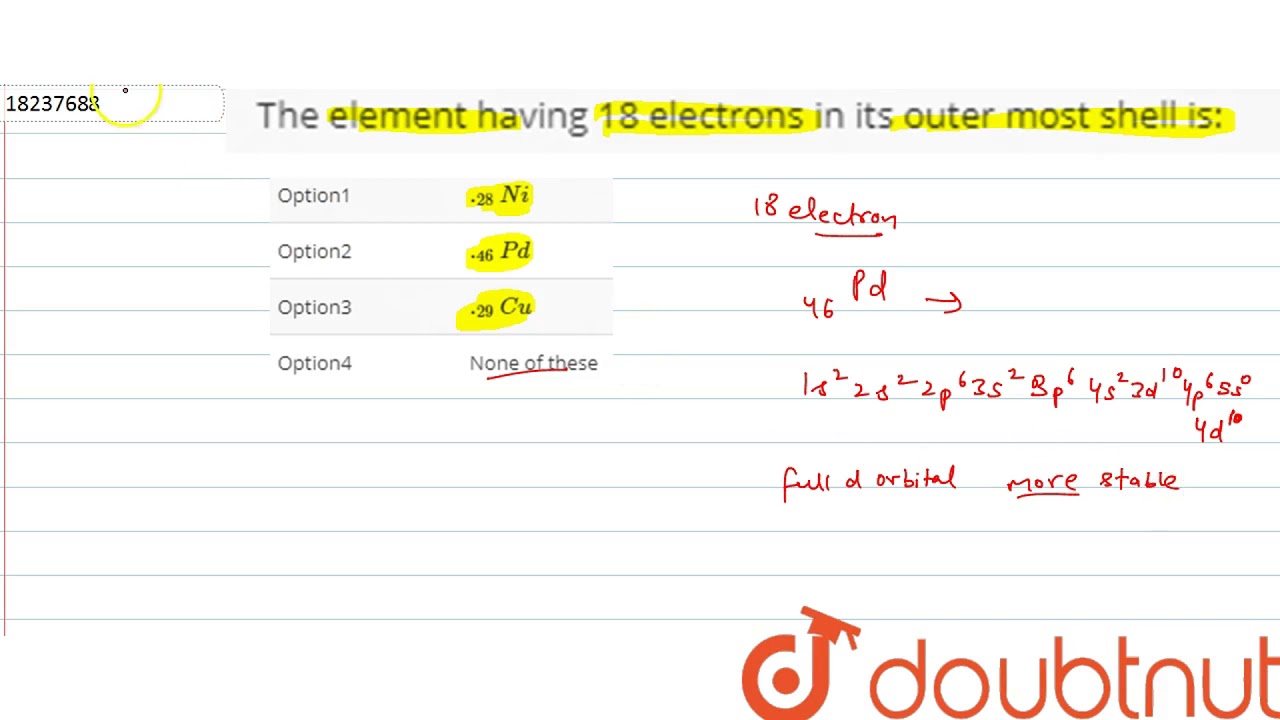 18237688
The element having 18 electrons in its outer most shell is:
Option1 .₂₈ Ni
Option2 .₄₆ Pd
Option3 .₂₉ Cu
Option4 None of these
18 electron
₄₆Pd →
1s² 2s² 2p⁶ 3s² 3p⁶ 4s² 3d¹⁰ 4p⁶ 5s⁰
4d¹⁰
full d orbital more stable
doubtnut